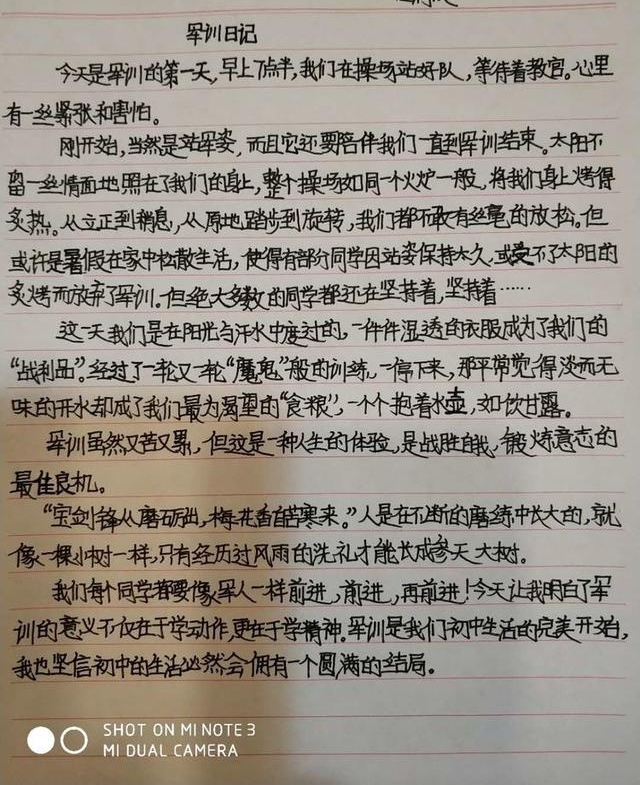 军训日记
今天是军训的第一天,早上7点半,我们在操场站好队,等待着教官。心里
有一丝紧张和害怕。
刚开始,当然是站军姿,而且它还要陪伴我们一直到军训结束。太阳不
留一丝情面地照在了我们的身上,整个操场如同一个火炉一般,将我们身上烤得
炙热。从立正到稍息,从原地踏步到旋转,我们都不敢有丝毫的放松。但
或许是暑假在家中松散生活,使得有部分同学因站姿保持太久,或受不了太阳的
炙烤而放弃了军训。但绝大多数的同学都还在坚持着,坚持着……
这一天我们是在阳光与汗水中度过的,一件件湿透的衣服成为了我们的
“战利品”。经过了一轮又一轮“魔鬼”般的训练,一停下来,那平常觉得淡而无
味的开水却成了我们最为渴望的“食粮”,一个个抱着水壶,如饮甘露。
军训虽然又苦又累,但这是一种人生的体验,是战胜自我,锻炼意志的
最佳良机。
“宝剑锋从磨砺出,梅花香自苦寒来。”人是在不断的磨练中长大的,就
像一棵小树一样,只有经历过风雨的洗礼才能长成参天大树。
我们每个同学都要像军人一样前进,前进,再前进!今天让我明白了军
训的意义不仅在于学动作,更在于学精神。军训是我们初中生活的完美开始,
我也坚信初中的生活必然会拥有一个圆满的结局。
SHOT ON MI NOTE 3
MI DUAL CAMERA